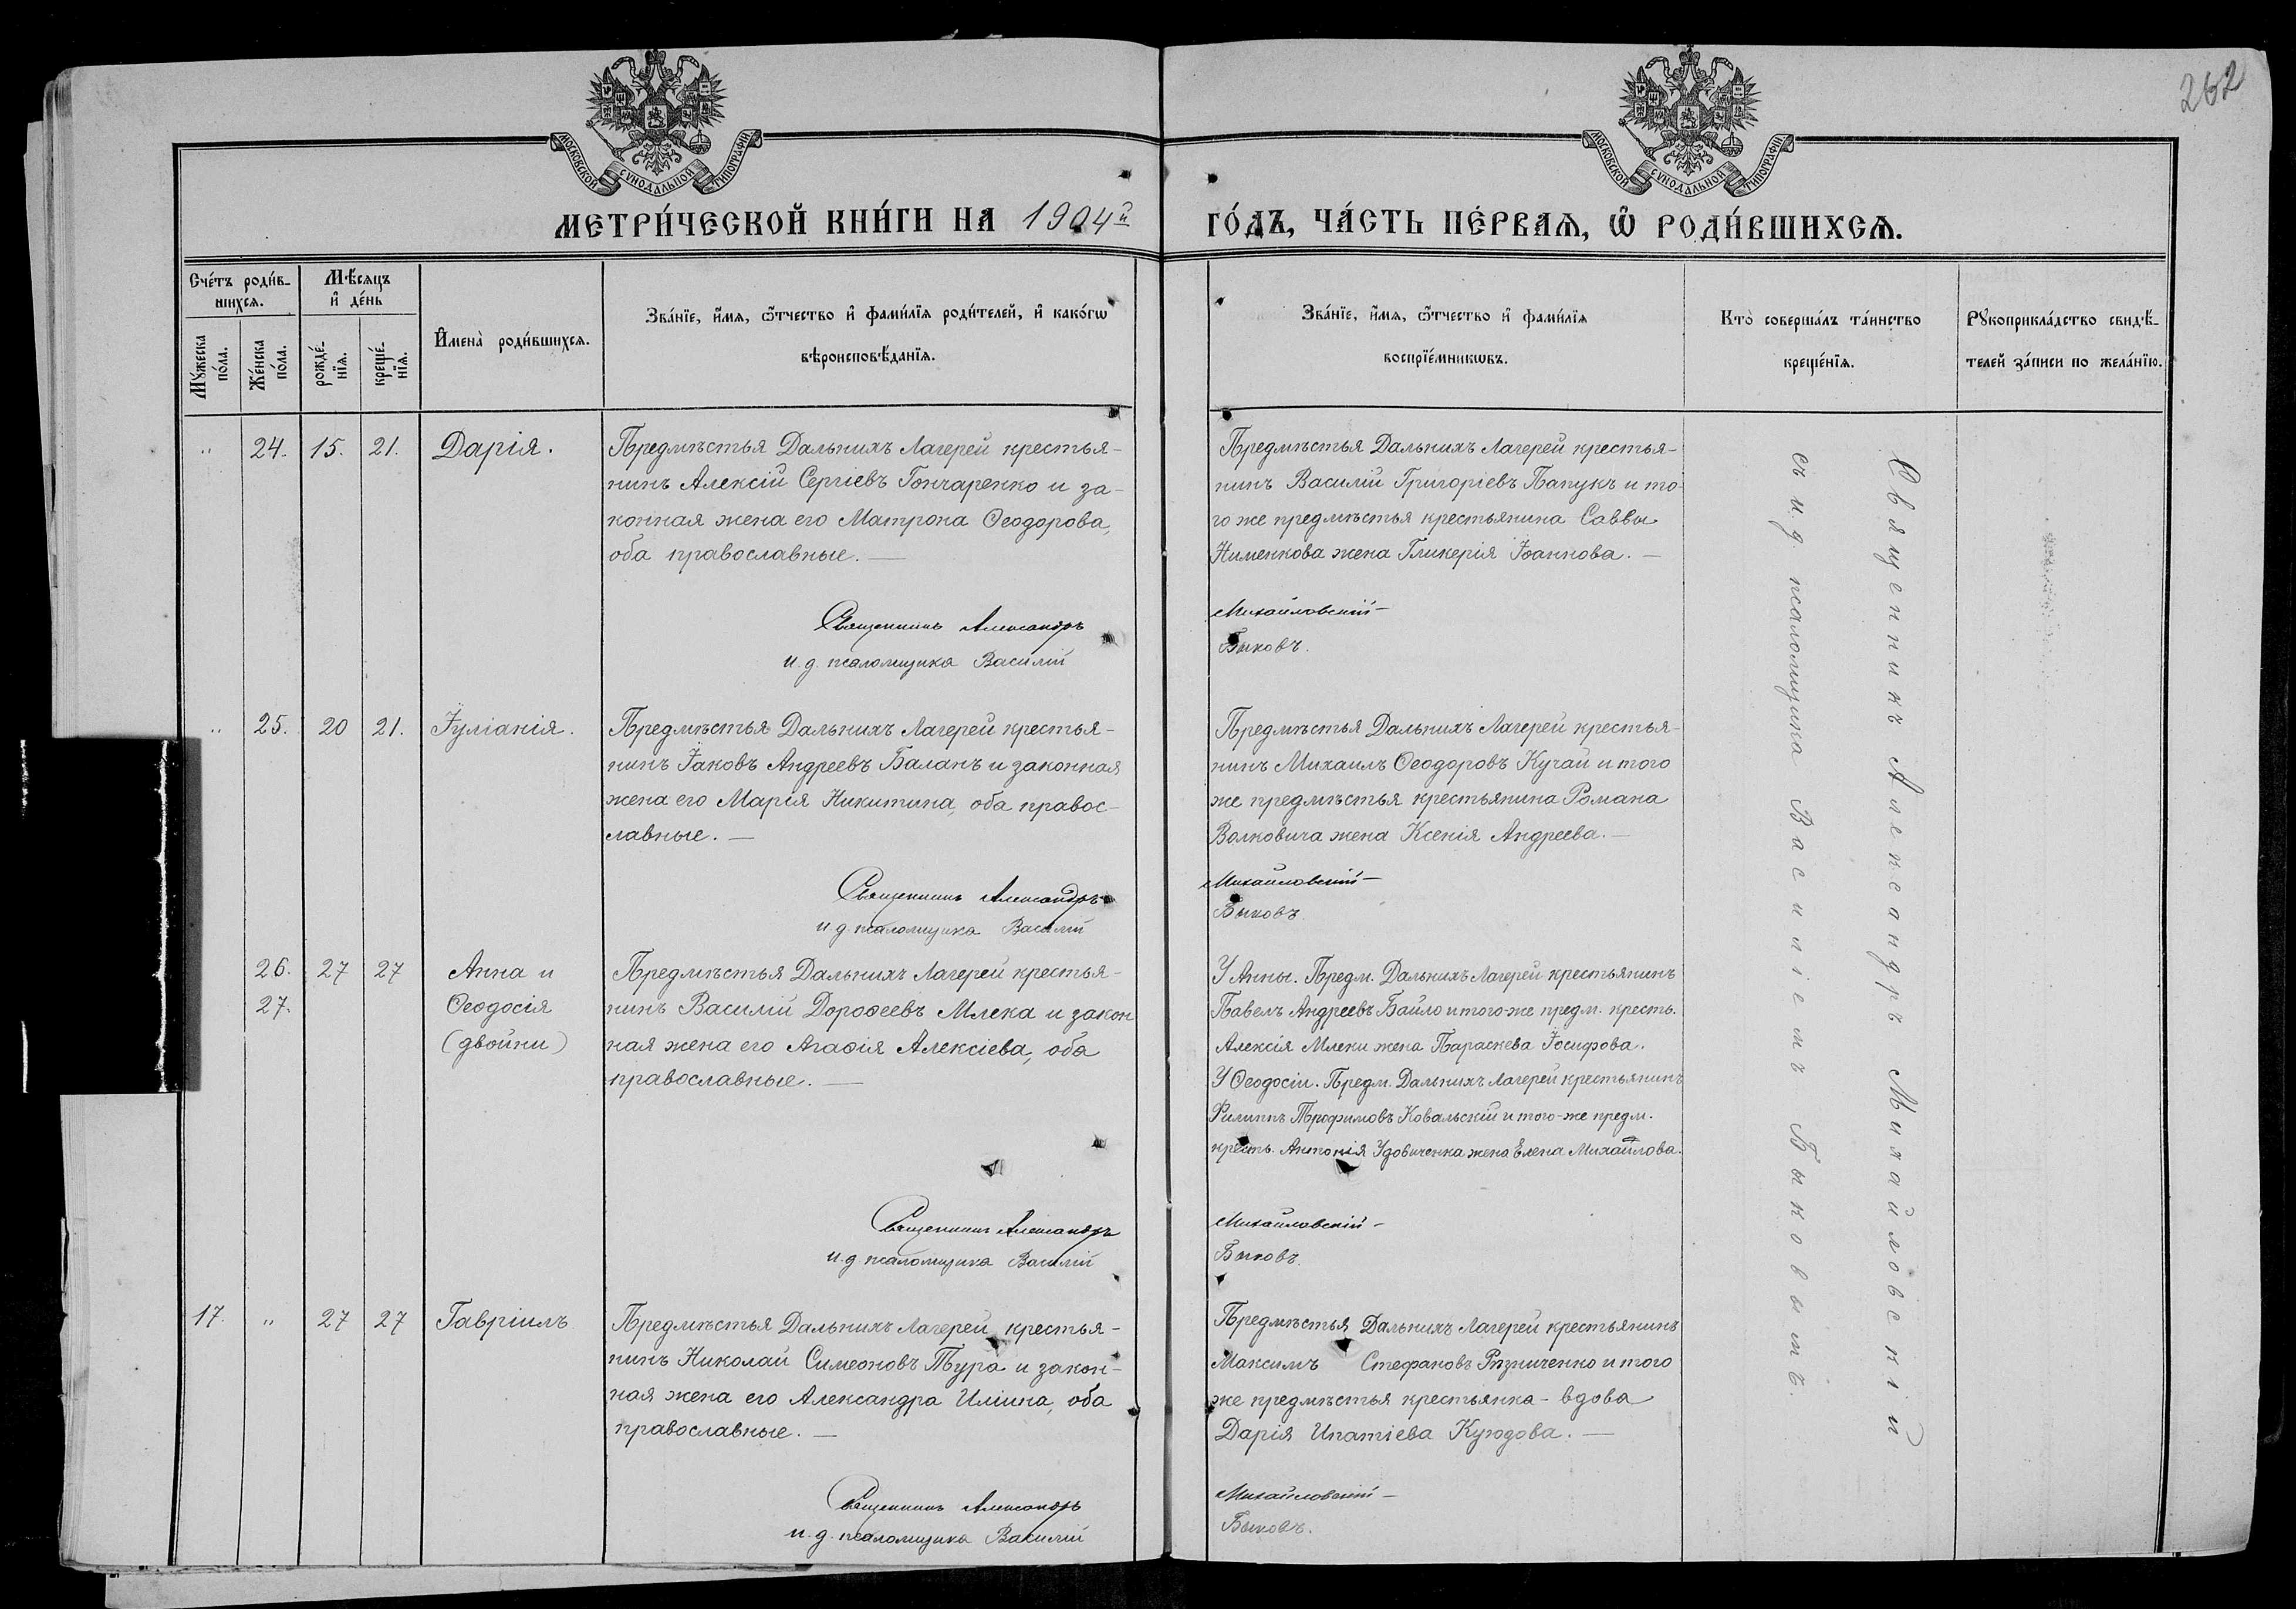 262
МОСКОВСКОЙ СУНОДАЛЬНОЙ ТИПОГРАФІИ
МОСКОВСКОЙ СУНОДАЛЬНОЙ ТИПОГРАФІИ
МЕТРИ́ЧЕСКОЙ КНИ́ГИ НА 1904й
ГО́ДЪ, ЧА́СТЬ ПЕ́РВАѦ, Ѡ҆ РОДИ́ВШИХСѦ.
Сче́тъ роди́в-
шихсѧ.
Мꙋ́жеска по́ла.
Же́нска по́ла.
Мѣ́сѧцъ
и҆ де́нь
рожде́-
нїѧ.
креще́-
нїѧ.
И҆мена̀ роди́вшихсѧ.
Зва́нїе, и҆́мѧ, ѻ҆́тчество и҆ фами́лїѧ роди́телей, и҆ како́гѡ
вѣроисповѣ́данїѧ.
Зва́нїе, и҆́мѧ, ѻ҆́тчество и҆ фами́лїѧ
воспрїе́мникѡвъ.
Кто̀ соверша́лъ та́инство
креще́нїѧ.
Рꙋкоприкла́дство свидѣ́-
телей за́писи по жела́нїю.
„ 24. 15. 21. Дарія.
Предмѣстья Дальнихъ Лагерей крестья-
нинъ Алексій Сергіевъ Гончаренко и за-
конная жена его Матрона Ѳеодорова,
оба православные. —
Предмѣстья Дальнихъ Лагерей крестья-
нинъ Василій Григоріевъ Папукъ и то-
го же предмѣстья крестьянина Саввы
Нименкова жена Гликерія Іоаннова. —
Священникъ Александръ Михайловскій —
и. д. псаломщика Василій Быковъ.
„ 25. 20 21. Іуліанія.
Предмѣстья Дальнихъ Лагерей крестья-
нинъ Іаковъ Андреевъ Баланъ и законная
жена его Марія Никитина, оба правос-
лавные. —
Предмѣстья Дальнихъ Лагерей крестья-
нинъ Михаилъ Ѳеодоровъ Кучай и того
же предмѣстья крестьянина Романа
Волковича жена Ксенія Андреева. —
Священникъ Александръ Михайловскій —
и. д. псаломщика Василій Быковъ.
26. 27 27 Анна и
27. Ѳеодосія
(двойни)
Предмѣстья Дальнихъ Лагерей крестья-
нинъ Василій Дороѳеевъ Млека и закон
ная жена его Агаѳія Алексіева, оба
православные. —
У Анны. Предм. Дальнихъ Лагерей крестьянинъ
Павелъ Андреевъ Байло и того-же предм. кресть.
Алексія Млеки жена Параскева Іосифова.
У Ѳеодосіи. Предм. Дальнихъ Лагерей крестьянинъ
Филиппъ Трофимовъ Ковальскій и того-же предм.
кресть. Антонія Удовиченка жена Елена Михайлова.
Священникъ Александръ Михайловскій —
и. д. псаломщика Василій Быковъ.
17. „ 27 27 Гавріилъ
Предмѣстья Дальнихъ Лагерей крестья-
нинъ Николай Симеоновъ Тура и закон-
ная жена его Александра Иліина, оба
православные. —
Предмѣстья Дальнихъ Лагерей крестьянинъ
Максимъ Стефановъ Рѣзниченко и того
же предмѣстья крестьянка - вдова
Дарія Ипатіева Куюдова. —
Священникъ Александръ Михайловскій —
и. д. псаломщика Василій Быковъ.
Священникъ Александръ Михайловскій
съ и. д. псаломщика Василіемъ Быковымъ